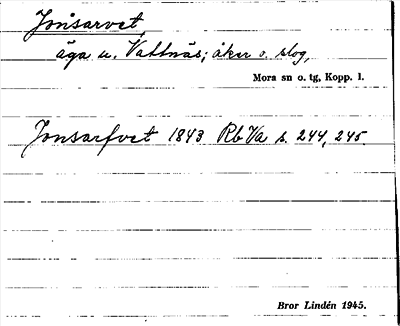 Jonsarvet,
äga u. Vattnäs; åker o. slog,
Mora sn o. tg, Kopp. l.
Jonsarfvet 1843 Rb Va s. 244, 245.
Bror Lindén 1945.